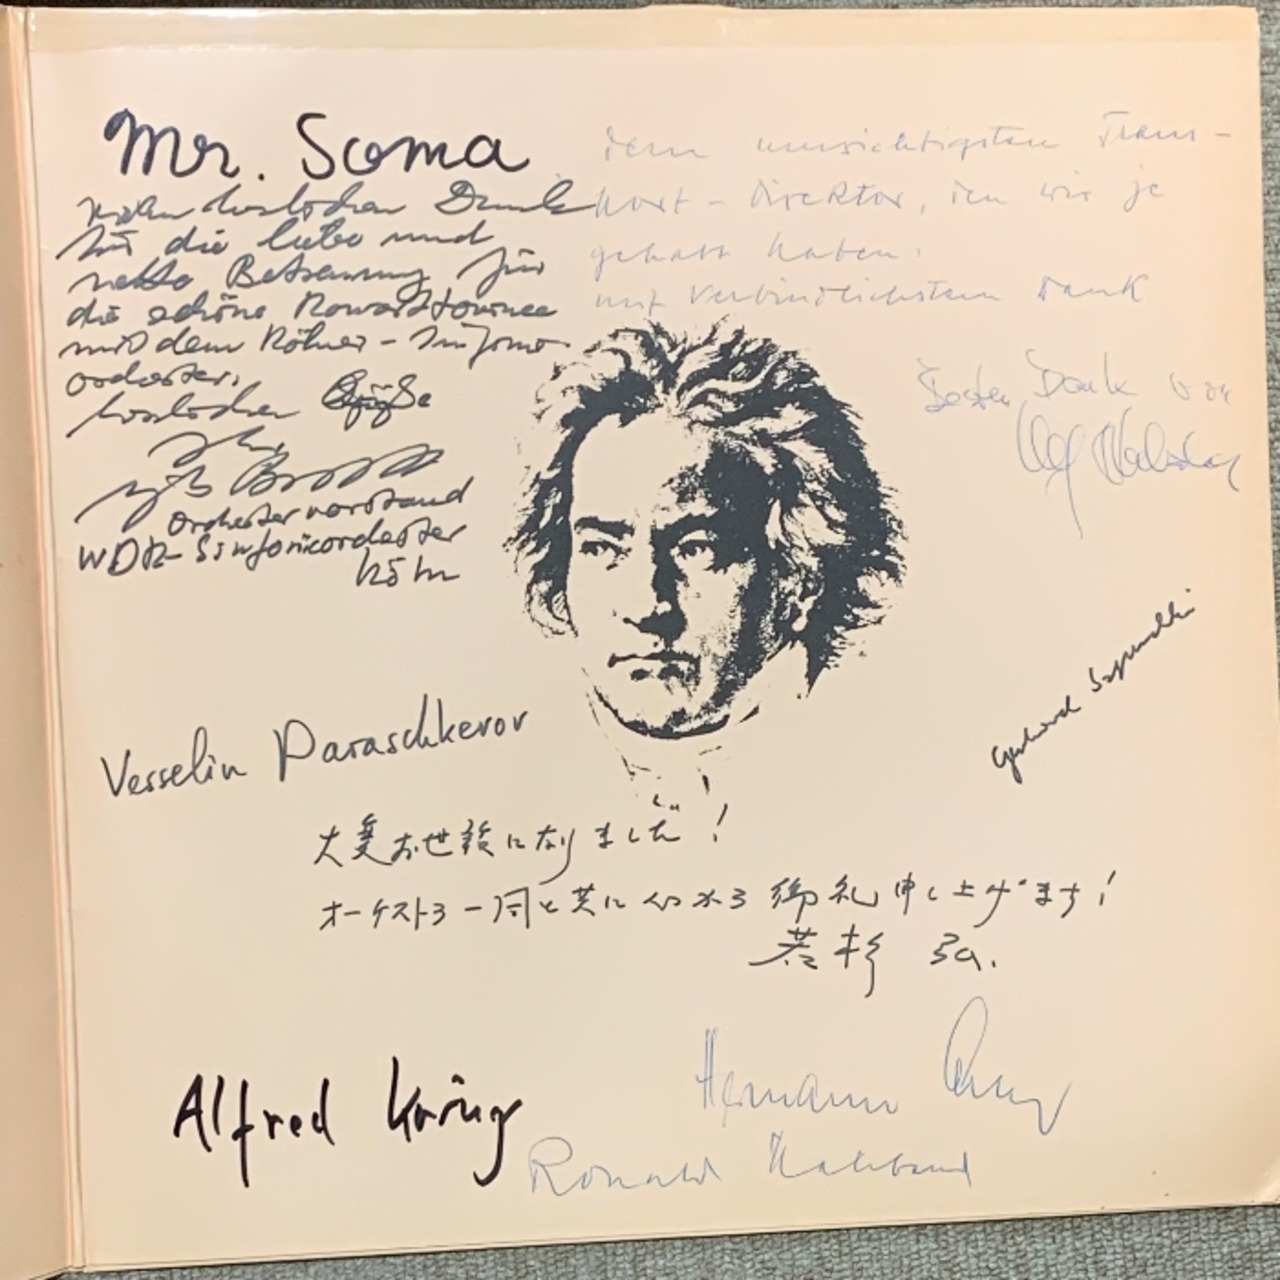 Mr. Soma
herzlichen Dank
für die liebe und
nette Betreuung für
die schöne Konzerttournee
mit dem Kölner-Sinfonie
orchester.
herzlichen Grüße
Ihr
Orchestervorstand
WDR-Sinfonieorchester
Köln
Dem umsichtigsten Trans-
port-Direktor, den wir je
gehabt haben.
mit verbindlichstem Dank
Besten Dank von
Gerhard
Vesselin Paraschkevov
大変お世話になりました!
オーケストラ一同と共に心から御礼申し上げます!
若杉 弘.
Alfred
Hermann
Ronald